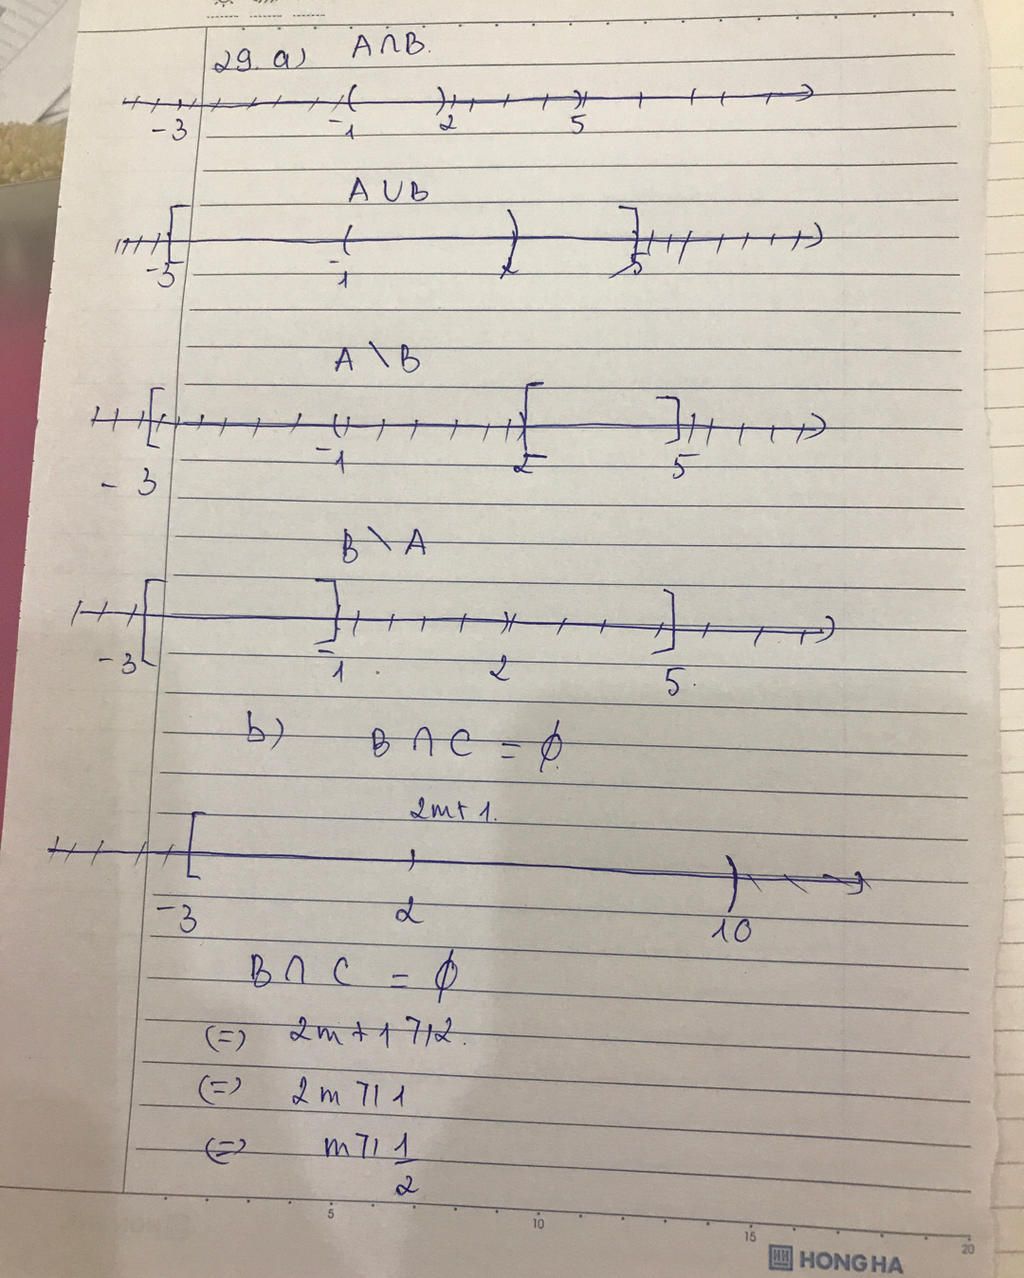 29. a) A∩B.
-3 -1 2 5
A∪B
-3 -1 2 5
A \ B
-3 -1 2 5
B \ A
-3 -1 2 5
b) B ∩ C = ∅
2m+1.
-3 2 10
B ∩ C = ∅
(=) 2m + 1 ⩾ 2.
(=) 2m ⩾ 1
(=) m ⩾ 1/2
5 10 15 20
HONG HA